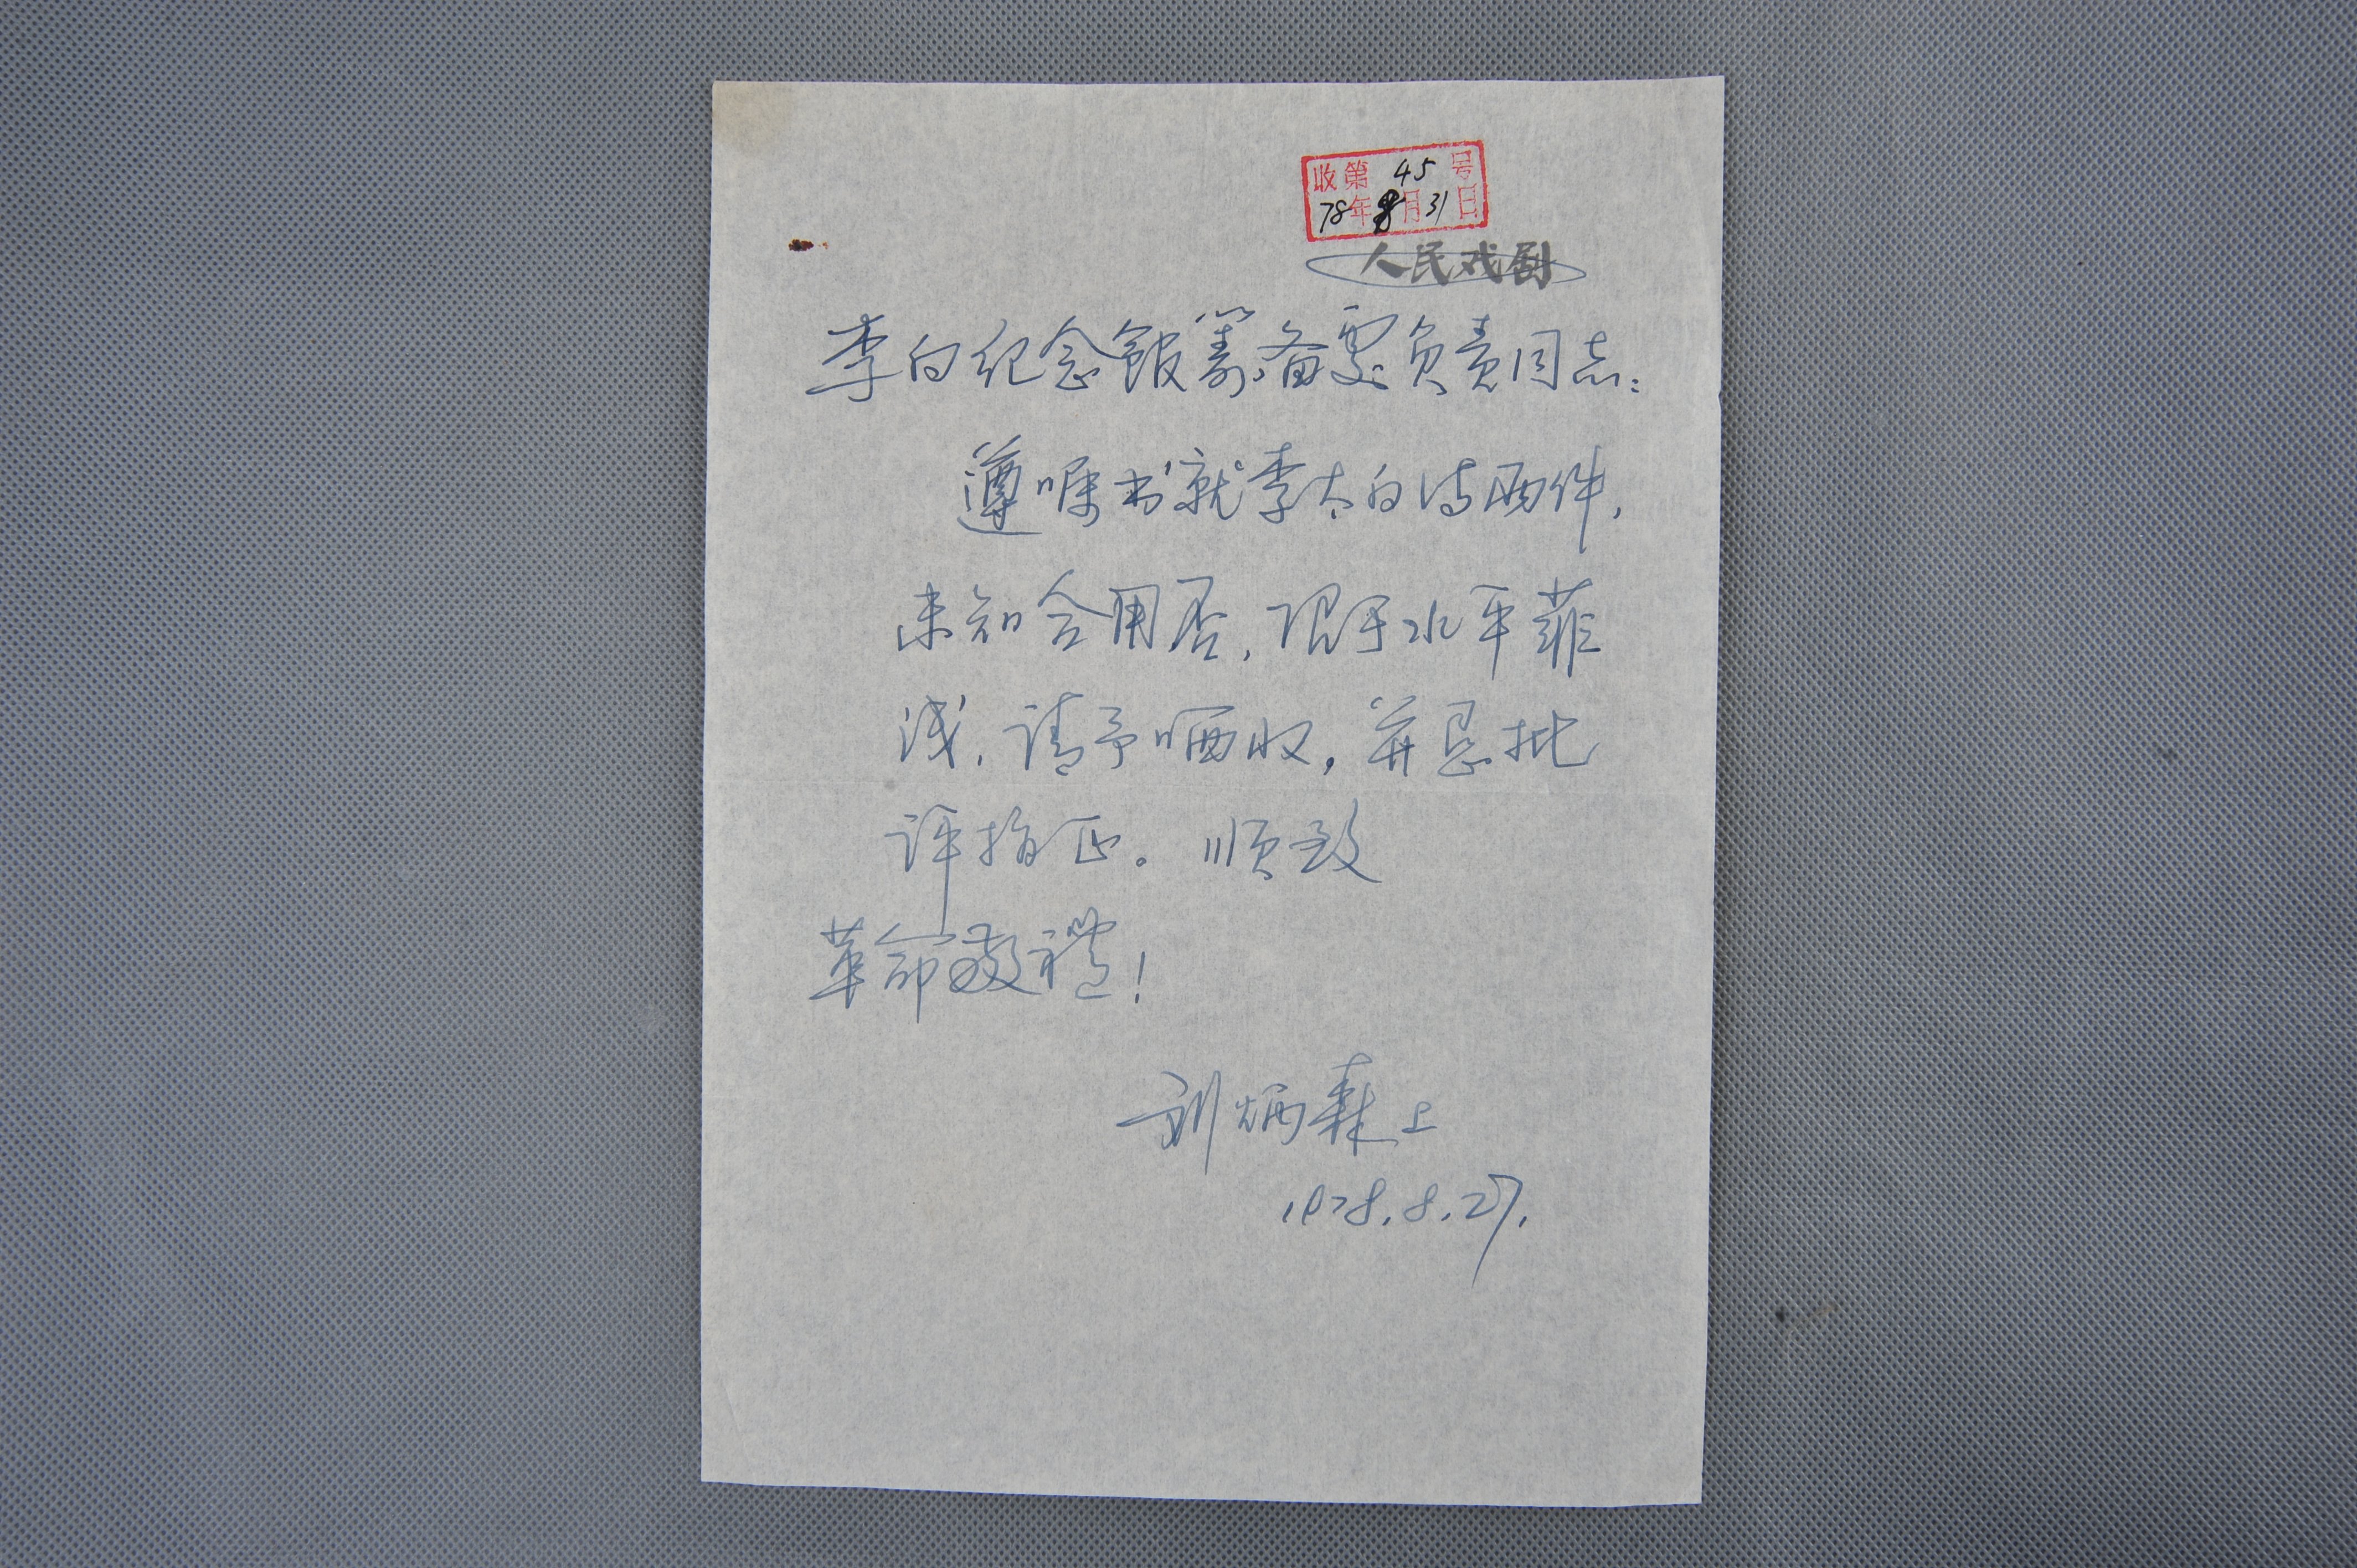 收第 45 号
78年8月31日
人民戏剧
李白纪念馆筹备委负责同志：
遵嘱书就李太白诗两件，
未知合用否，限于水平菲
浅，请予哂收，并恳批
评指正。顺致
革命敬禮！
刘炳森上
1978.8.27.